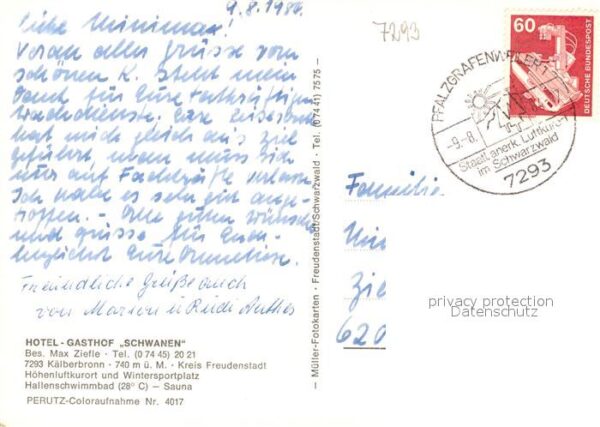 9.8.1984
7293
Liebe
Voran alles Grüsse vom
schönen K. steht mein
Dank für Eure
hat mich gleich ans Ziel
geführt, man muss sich
nur auf Fachkräfte verlassen.
Ich habe es sehr gut ange-
troffen. - Alle guten Wünsche
und Grüsse für Euch
Eure Anneliese.
Freundliche Grüße auch
von Marion u Rudi
HOTEL - GASTHOF „SCHWANEN"
Bes. Max Ziefle · Tel. (0 74 45) 20 21
7293 Kälberbronn · 740 m ü. M. · Kreis Freudenstadt
Höhenluftkurort und Wintersportplatz
Hallenschwimmbad (28° C) – Sauna
PERUTZ-Coloraufnahme Nr. 4017
– Müller-Fotokarten · Freudenstadt/Schwarzwald · Tel. (0 74 41) 75 75 –
60
DEUTSCHE BUNDESPOST
PFALZGRAFENWEILER 1
-9.-8.
Staatl. anerk. Luftkurort
im Schwarzwald
7293
Familie
Zie
620
privacy protection
Datenschutz